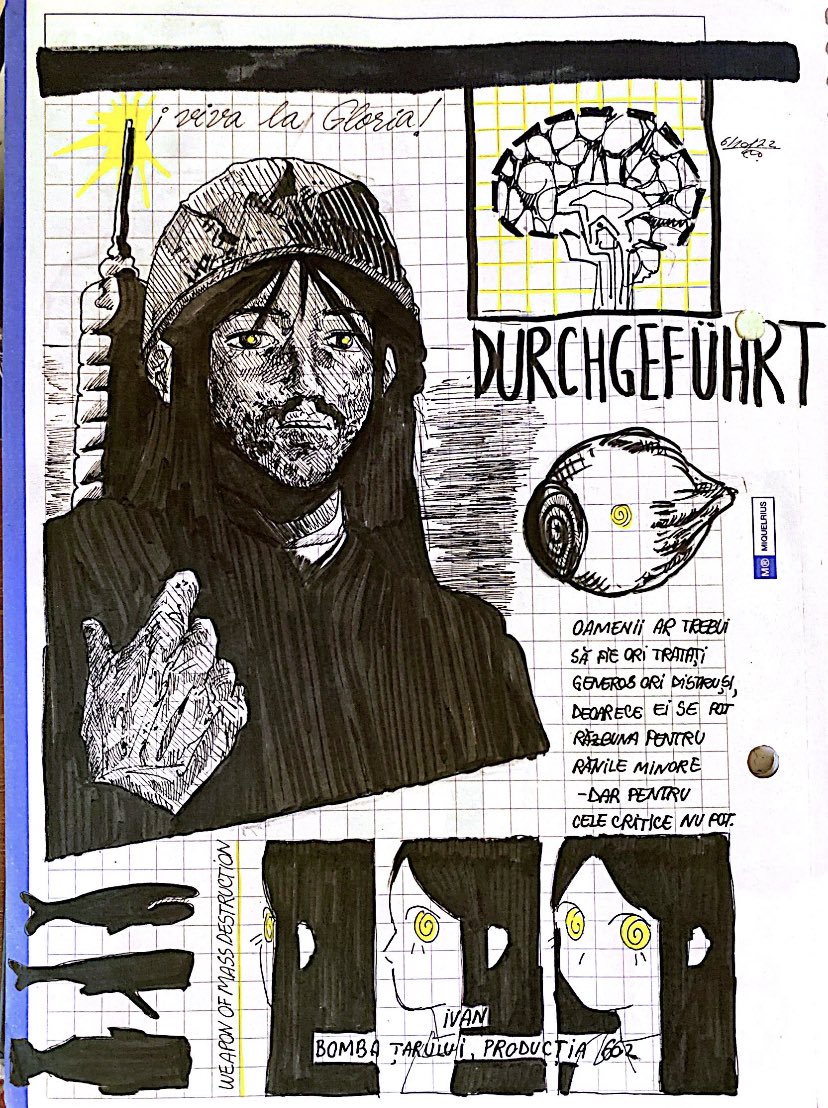 ¡viva la Gloria!
6/10/22
DURCHGEFÜHRT
M® MIQUELRIUS
OAMENII AR TREBUI
SĂ FIE ORI TRATAȚI
GENEROS ORI DISTRUȘI,
DEOARECE EI SE POT
RĂZBUNA PENTRU
RĂNILE MINORE
-DAR PENTRU
CELE CRITICE NU POT.
WEAPON OF MASS DESTRUCTION
IVAN
BOMBA ȚARULUI, PRODUCȚIA 602